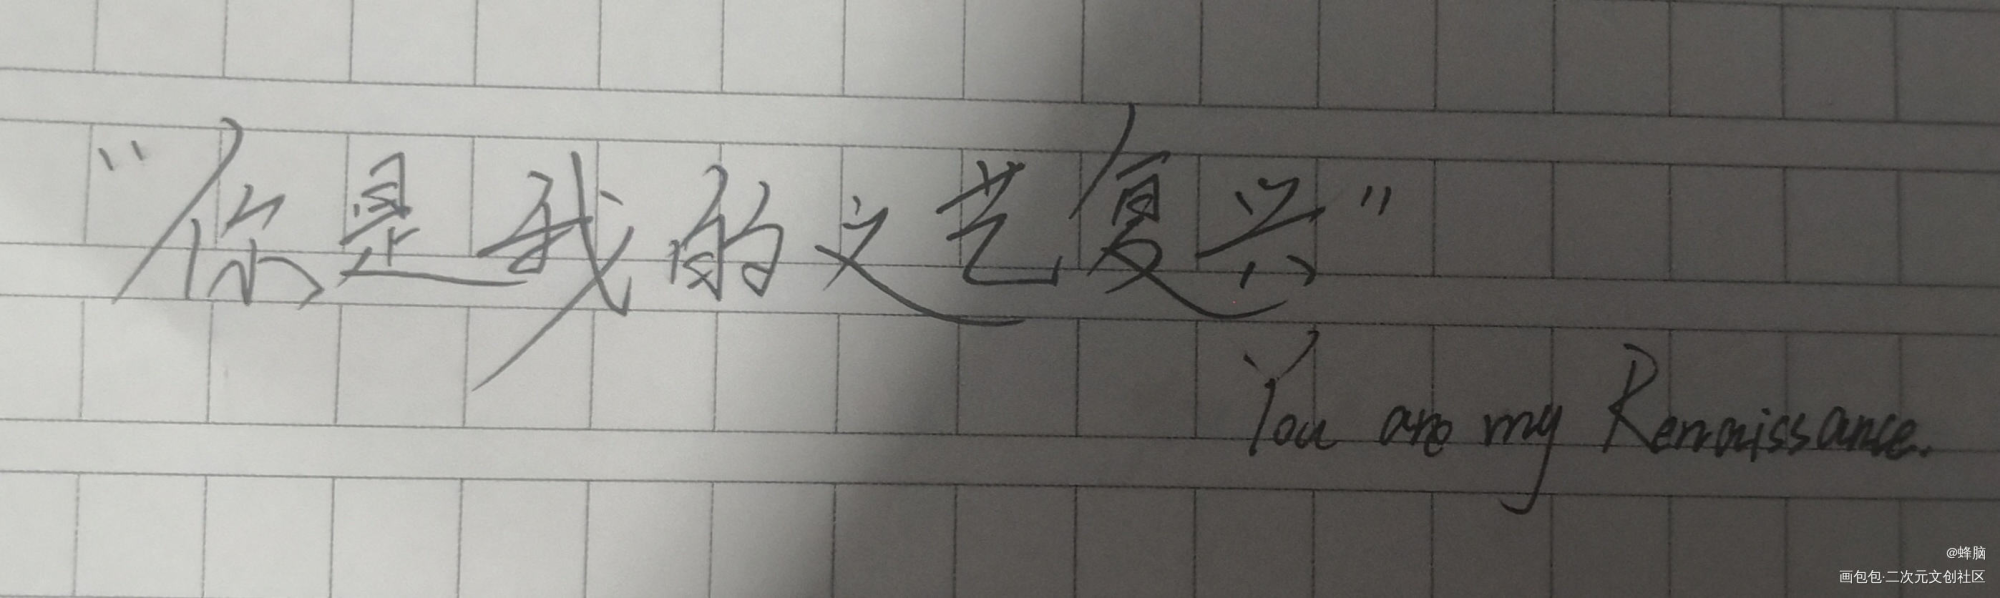 “你是我的文艺复兴”
You are my Renaissance.
@蜂脑
画包包·二次元文创社区